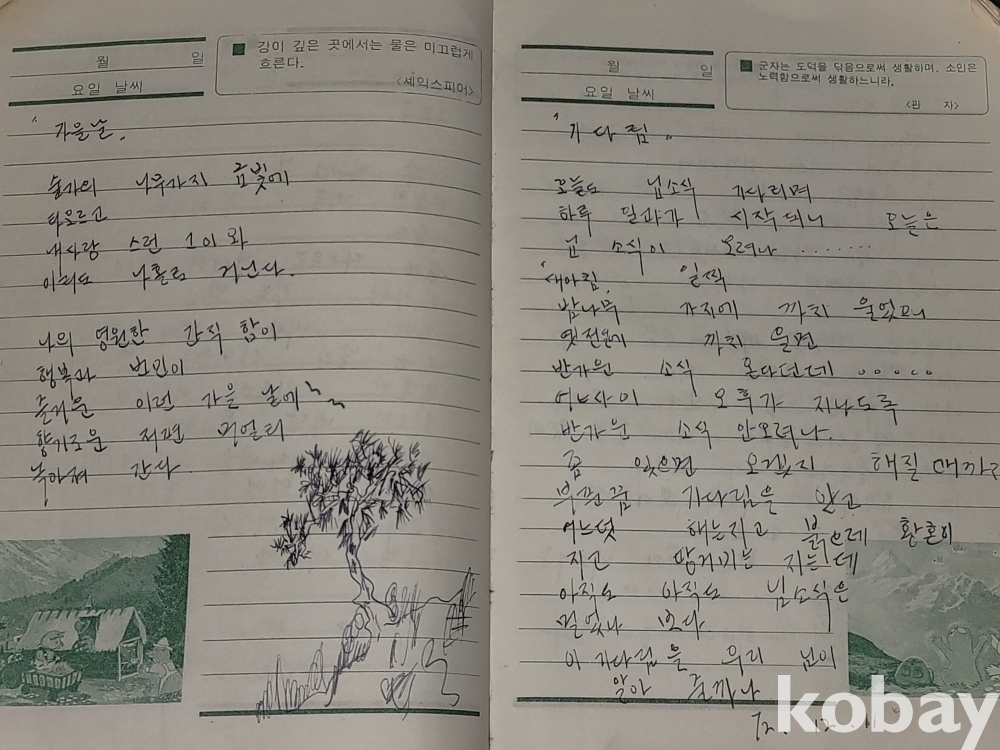 월 일
요일 날씨
강이 깊은 곳에서는 물은 미끄럽게
흐른다.
<셰익스피어>
가을날.
술가의 나무가지 금빛에
타오르고
내사랑 스런 그이와
이리도 나홀로 거닌다.
나의 영원한 간직 함이
행복과 번민이
즐거운 이런 가을 날에
향기로운 저편 멀리
녹아져 간다.
월 일
요일 날씨
군자는 도덕을 닦음으로써 생활하며, 소인은
노력함으로써 생활하느니라.
<관 자>
"기다림"
오늘도 님소식 기다리며
하루 일과가 시작되니 오늘은
님 소식이 오려나 ........
새아침. 일찍
밤나무 가지에 까치 울었으니
옛전온에 까치 울면
반가운 소식 온다던데 .....
어느사이 오후가 지나도록
반가운 소식 안오려나.
좀 있으면 오겠지 해질 때까지
기다림을 안고
어느덧 해는지고 붉으레 황혼이
지고 지는데
아직도 아직도 님소식은
멀었나 보다
이 기다림을 우리 님이
알아 줄까나
72. 12.
kobay